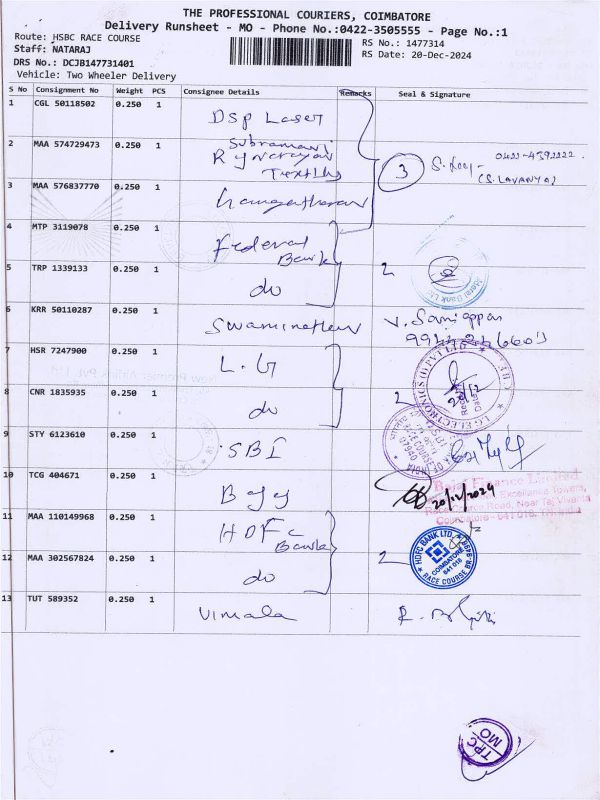 THE PROFESSIONAL COURIERS, COIMBATORE
Delivery Runsheet - MO - Phone No.:0422-3505555 - Page No.:1
Route: HSBC RACE COURSE
RS No.: 1477314
Staff: NATARAJ
RS Date: 20-Dec-2024
DRS No.: DCJB147731401
Vehicle: Two Wheeler Delivery
S No Consignment No Weight PCS Consignee Details Remarks Seal & Signature
1 CGL 50118502 0.250 1 Dsp Laser
2 MAA 574729473 0.250 1 Subramani
Textiles
3 0422-4392222
(S. LAVANYA)
3 MAA 576837770 0.250 1
4 MTP 3119078 0.250 1 Federal Bank
5 TRP 1339133 0.250 1 do 2
6 KRR 50110287 0.250 1 V. Samiappan
7 HSR 7247900 0.250 1 L.G
8 CNR 1835935 0.250 1 do 2 20/12
9 STY 6123610 0.250 1 SBI
10 TCG 404671 0.250 1 20/12/2024
Bajaj Finance Limited
Excellance Towers,
Race Course Road, Near Taj Vivanta
Coimbatore - 641 018.
11 MAA 110149968 0.250 1 HDFC Bank
12 MAA 302567824 0.250 1 do 2
HDFC BANK LTD.
COIMBATORE
641 018
RACE COURSE BR.
13 TUT 589352 0.250 1 Vimala
TPC
MO